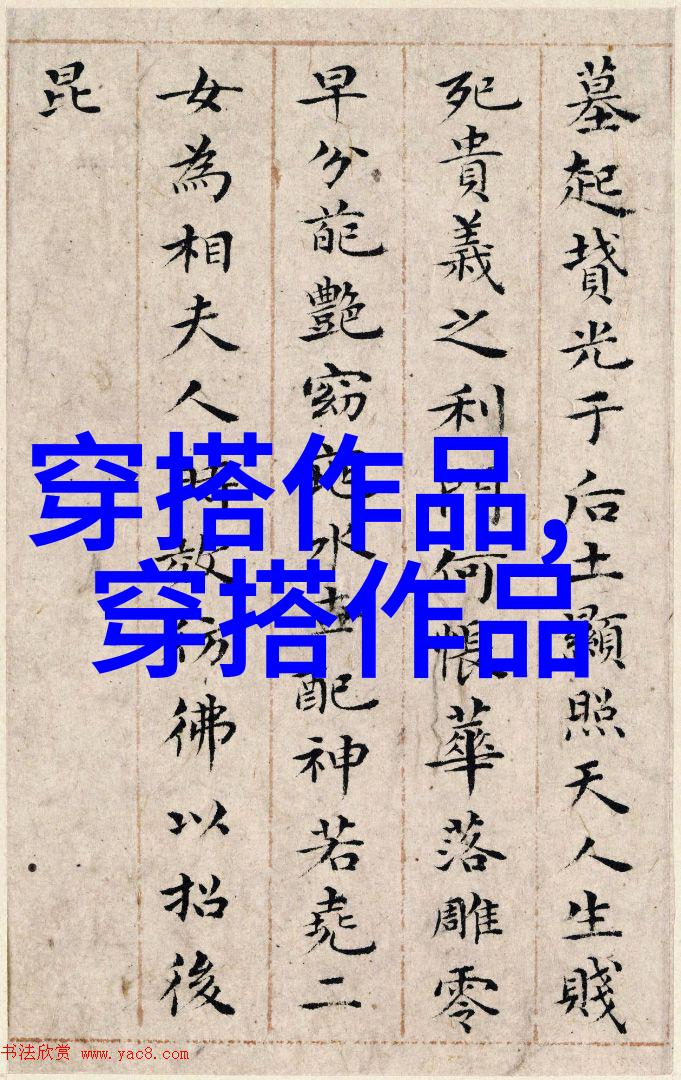 墓起墳光于后土顯照天人生賤
死貴義之利門何悵華落雕零
早分葩艷窈窕永世配神若堯二
女為相夫人時效仿彿以招後
昆
穿搭作品,
穿搭作品
书法欣赏 www.yac8.com